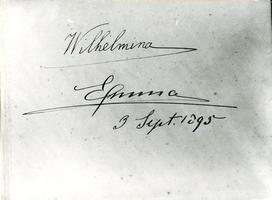 Wilhelmina
Emma
3 Sept. 1895